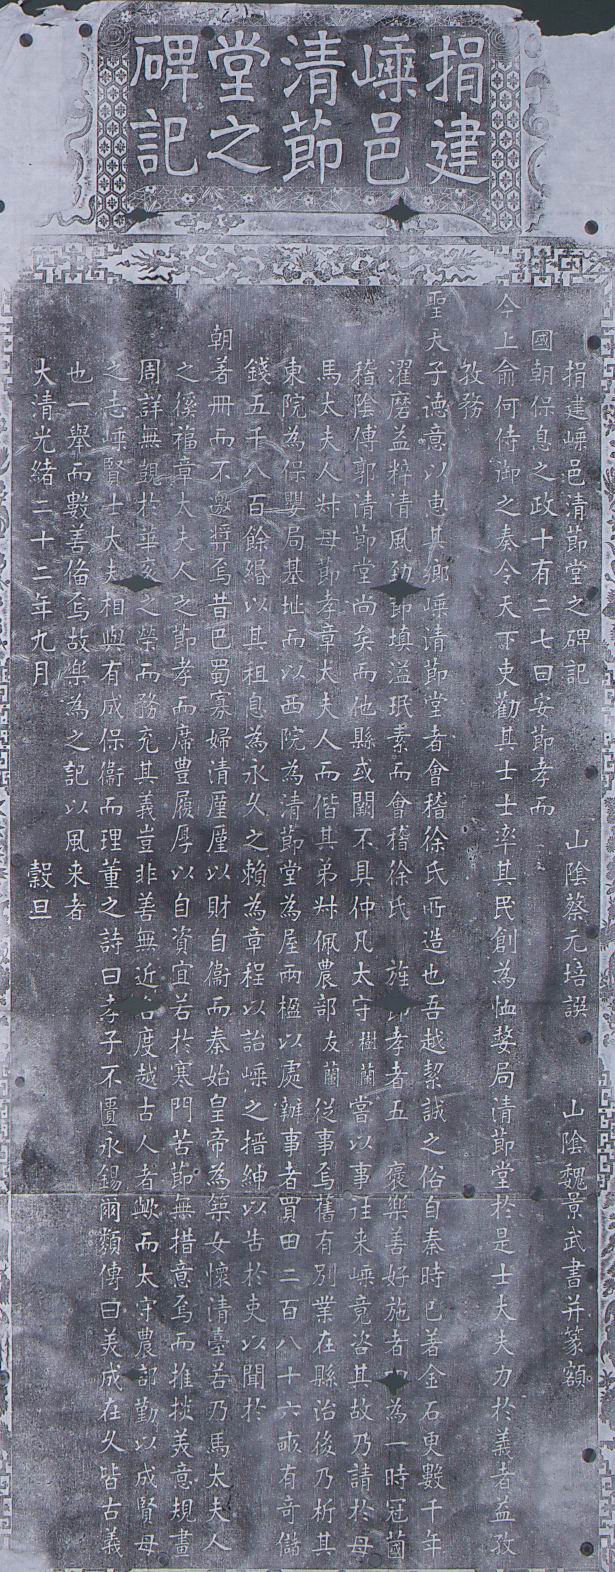 捐建
嵊邑
清節
堂之
碑記
捐建嵊邑清節堂之碑記 山陰蔡元培譔 山陰魏景武書并篆額
國朝保息之政十有二七曰安節孝而
今上俞何侍御之奏令天下吏勸其士士率其民創為恤嫠局清節堂於是士大夫力於義者益孜
孜務
聖天子德意以惠其鄉嵊清節堂者會稽徐氏所造也吾越絜誠之俗自秦時已著金石更數千年
濯磨益粹清風勁節填溢珉素而會稽徐氏 旌節孝者五 褒樂善好施者 為一時冠菌
稽陰傅郭清節堂尚矣而他縣或闕不具仲凡太守樹蘭當以事往来嵊竟咨其故乃請於母
馬太夫人叔母節孝章太夫人而偕其弟叔佩農部友蘭從事焉舊有別業在縣治後乃析其
東院為保嬰局基址而以西院為清節堂為屋兩楹以處辦事者買田二百八十六畝有奇儲
錢五千八百餘緡以其租息為永久之賴為章程以詒嵊之搢紳以告於吏以聞於
朝著冊而不邀獎焉昔巴蜀寡婦清廑廑以財自衞而秦始皇帝為築女懷清臺若乃馬太夫人
之徯褔章太夫人之節孝而席豊履厚以自資宜若於寒門苦節無措意焉而推掞美意規畫
周詳無覬於華衮之榮而務充其義豈非善無近名度越古人者歟而太守農部勤以成賢母
之志嵊賢士大夫相與有成保衞而理董之詩曰孝子不匱永錫爾類傳曰美成在久皆古義
也一舉而數善偹焉故樂為之記以風来者
大清光緒二十二年九月 穀旦